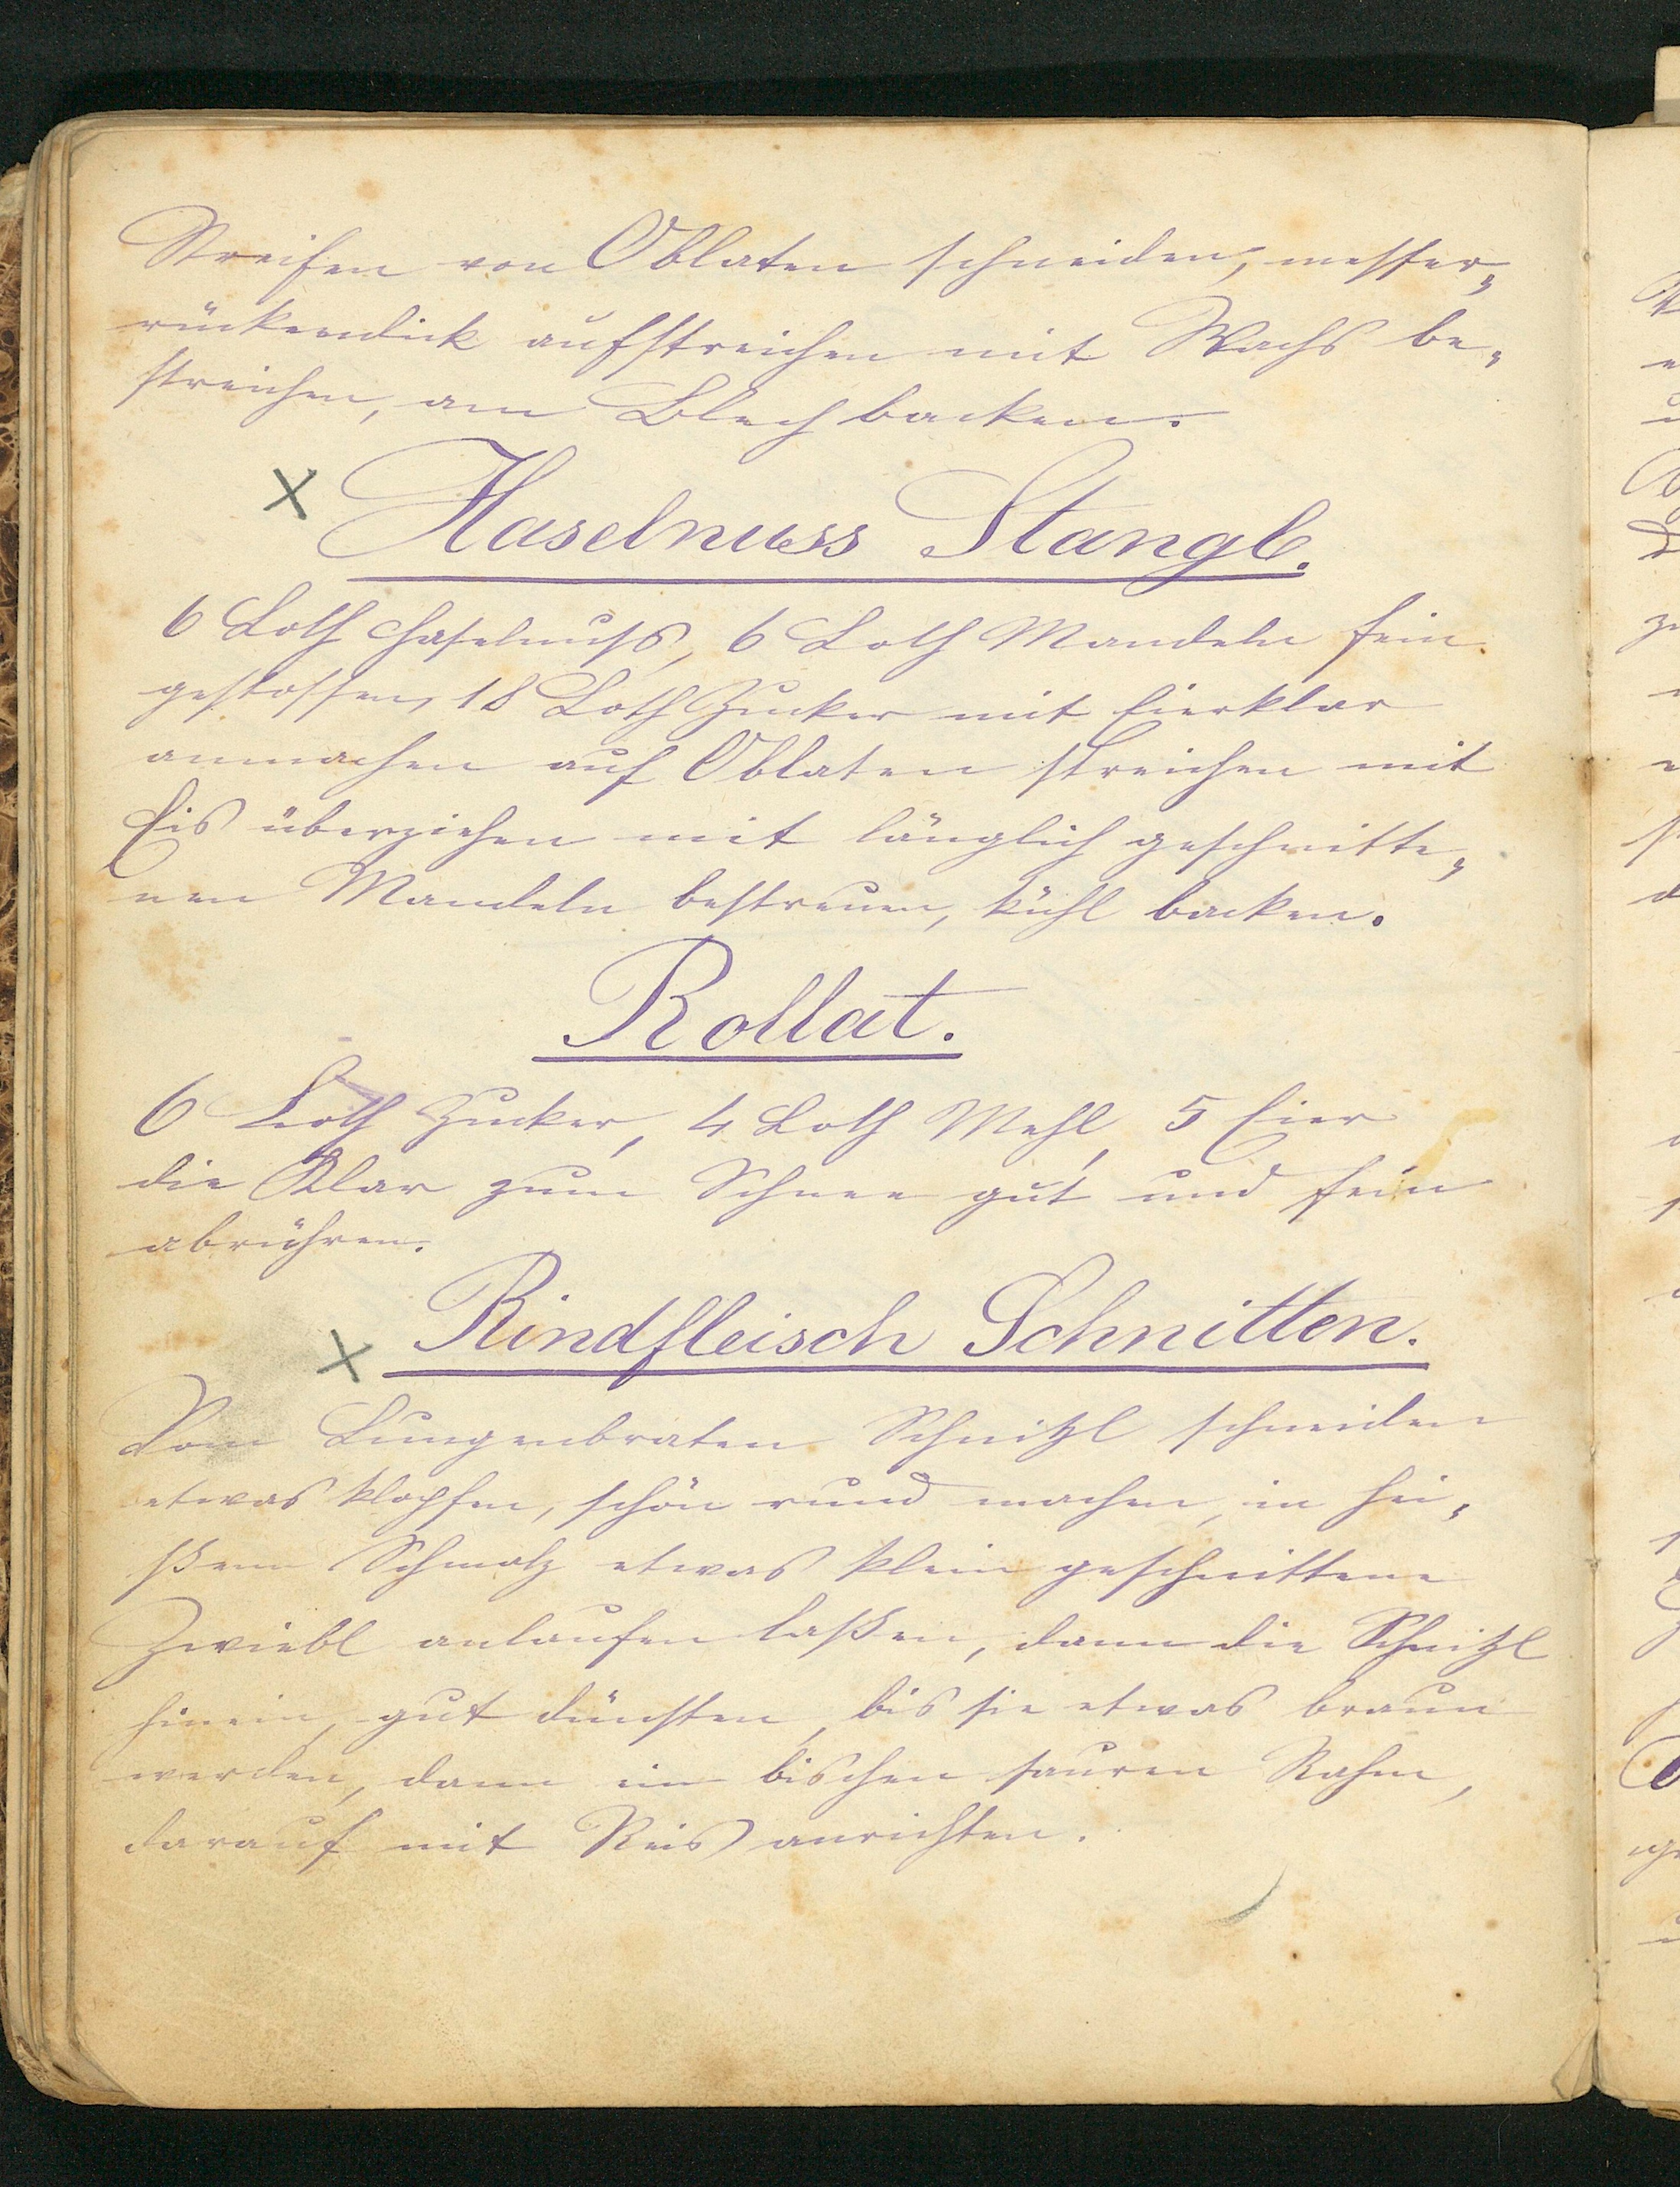 Streifen von Oblaten schneiden, messer„
rückendick aufstreichen mit Wachs be„
streichen, am Blech backen.
x Haselnuss Stangl.
6 Loth Haselnuß, 6 Loth Mandeln fein
gestossen, 18 Loth Zucker mit Eierklar
anmachen auf Oblaten streichen mit
Eis überziehen mit länglich geschnitte„
nen Mandeln bestreuen, kühl backen.
Rollat.
6 Loth Zucker, 4 Loth Mehl, 5 Eier
die Klar zum Schnee gut und fein
abrühren.
x Rindfleisch Schnitten.
Vom Lungenbraten Schnitzl schneiden
etwas klopfen, schön rund machen, in hei„
ßem Schmalz etwas klein geschnittene
Zwiebl anlaufen laßen, dann die Schnitzl
hinein, gut dünsten, bis sie etwas braun
werden, dann ein bischen sauren Rahm,
darauf mit Reis anrichten.